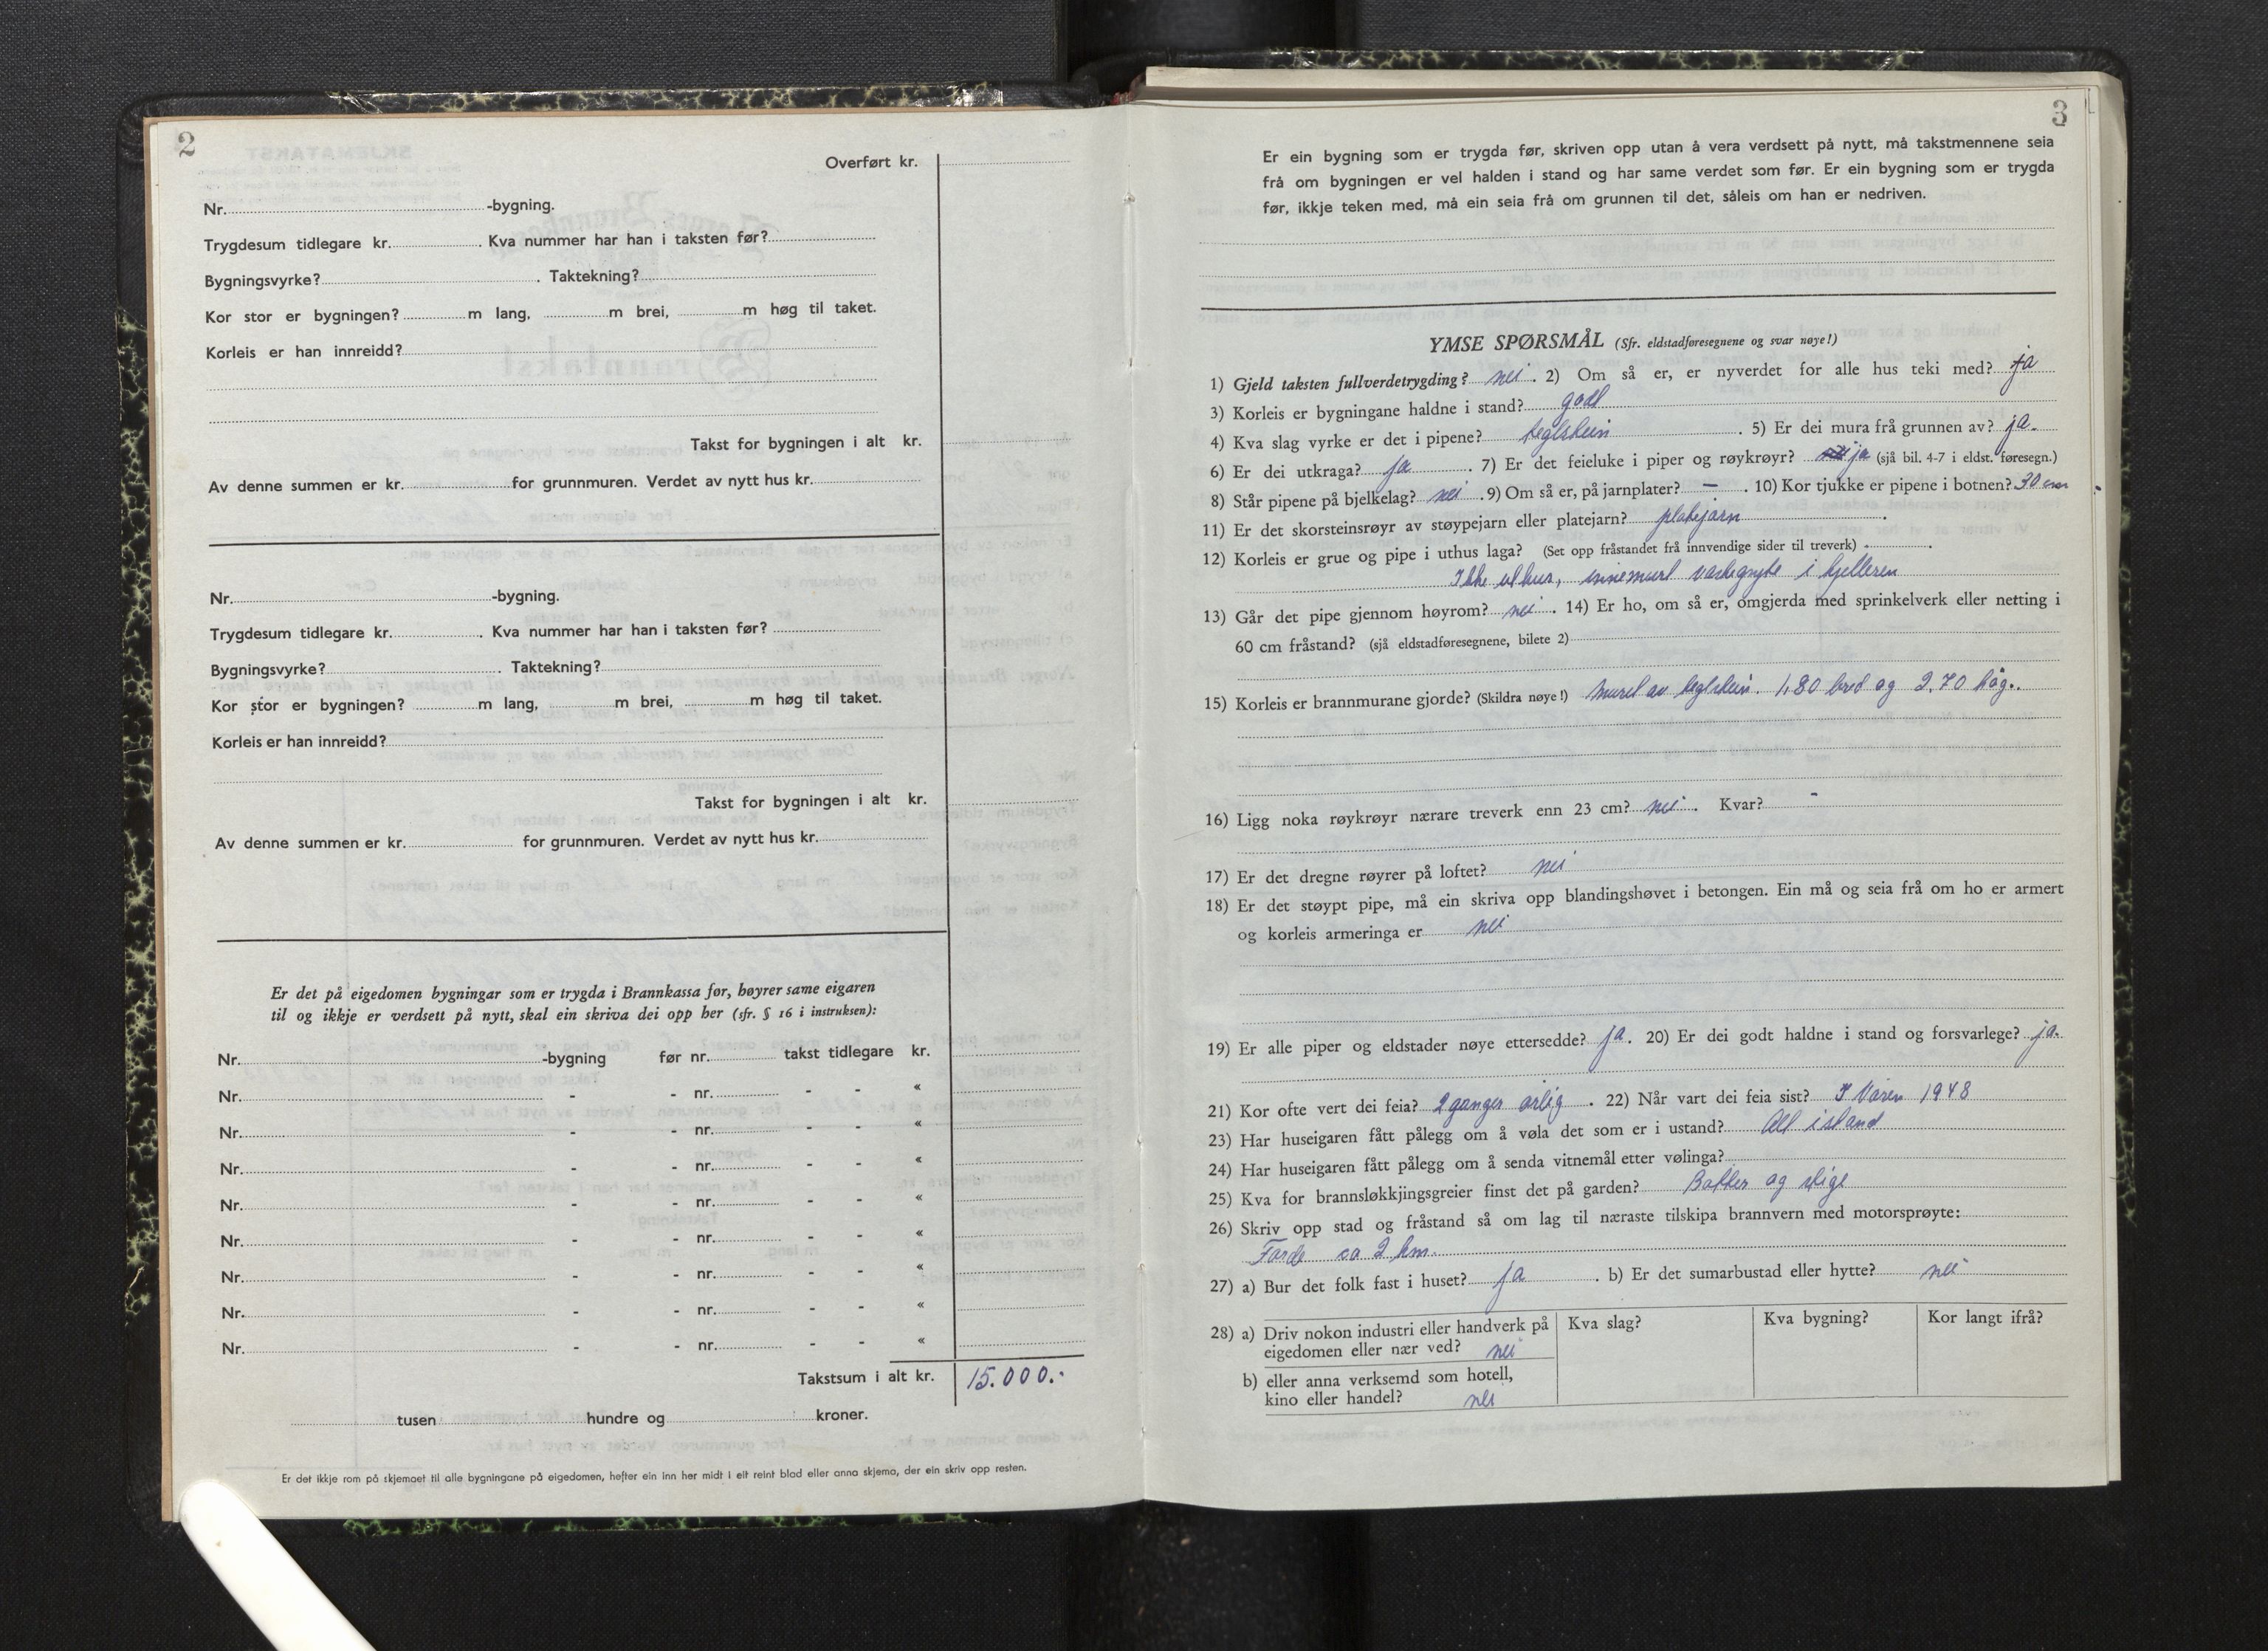 2
Overført kr.
Nr. -bygning.
Trygdesum tidlegare kr. . Kva nummer har han i taksten før?
Bygningsvyrke? . Taktekning?
Kor stor er bygningen? m lang, m brei, m høg til taket.
Korleis er han innreidd?
Takst for bygningen i alt kr.
Av denne summen er kr. for grunnmuren. Verdet av nytt hus kr.
Nr. -bygning.
Trygdesum tidlegare kr. . Kva nummer har han i taksten før?
Bygningsvyrke? . Taktekning?
Kor stor er bygningen? m lang, m brei, m høg til taket.
Korleis er han innreidd?
Takst for bygningen i alt kr.
Av denne summen er kr. for grunnmuren. Verdet av nytt hus kr.
Er det på eigedomen bygningar som er trygda i Brannkassa før, høyrer same eigaren
til og ikkje er verdsett på nytt, skal ein skriva dei opp her (sfr. § 16 i instruksen):
Nr. -bygning før nr. takst tidlegare kr.
Nr. - - nr. - - «
Nr. - - nr. - - «
Nr. - - nr. - - «
Nr. - - nr. - - «
Nr. - - nr. - - «
Nr. - - nr. - - «
Nr. - - nr. - - «
Nr. - - nr. - - «
Takstsum i alt kr. 15.000.-
tusen hundre og kroner.
Er det ikkje rom på skjemaet til alle bygningane på eigedomen, hefter ein inn her midt i eit reint blad eller anna skjema, der ein skriv opp resten.
3
Er ein bygning som er trygda før, skriven opp utan å vera verdsett på nytt, må takstmennene seia
frå om bygningen er vel halden i stand og har same verdet som før. Er ein bygning som er trygda
før, ikkje teken med, må ein seia frå om grunnen til det, såleis om han er nedriven.
YMSE SPØRSMÅL (Sfr. eldstadføresegnene og svar nøye!)
1) Gjeld taksten fullverdetrygding? nei . 2) Om så er, er nyverdet for alle hus teki med? ja
3) Korleis er bygningane haldne i stand? godt
4) Kva slag vyrke er det i pipene? teglstein . 5) Er dei mura frå grunnen av? ja.
6) Er dei utkraga? ja . 7) Er det feieluke i piper og røykrøyr? ja (sjå bil. 4-7 i eldst. føresegn.)
8) Står pipene på bjelkelag? nei . 9) Om så er, på jarnplater? – . 10) Kor tjukke er pipene i botnen? 30 cm
11) Er det skorsteinsrøyr av støypejarn eller platejarn? platejarn .
12) Korleis er grue og pipe i uthus laga? (Set opp fråstandet frå innvendige sider til treverk) .
Ikke uthus, innemurt vaskegryte i kjelleren
13) Går det pipe gjennom høyrom? nei . 14) Er ho, om så er, omgjerda med sprinkelverk eller netting i
60 cm fråstand? (sjå eldstadføresegnene, bilete 2)
15) Korleis er brannmurane gjorde? (Skildra nøye!) Muret av teglstein. 1,80 bred og 2,70 høg.
16) Ligg noka røykrøyr nærare treverk enn 23 cm? nei . Kvar? -
17) Er det dregne røyrer på loftet? nei
18) Er det støypt pipe, må ein skriva opp blandingshøvet i betongen. Ein må og seia frå om ho er armert
og korleis armeringa er nei
19) Er alle piper og eldstader nøye ettersedde? ja . 20) Er dei godt haldne i stand og forsvarlege? ja.
21) Kor ofte vert dei feia? 2 ganger årlig . 22) Når vart dei feia sist? I Våren 1948
23) Har huseigaren fått pålegg om å vøla det som er i ustand? Alt i stand
24) Har huseigaren fått pålegg om å senda vitnemål etter vølinga?
25) Kva for brannsløkkjingsgreier finst det på garden? Bøtter og stige
26) Skriv opp stad og fråstand så om lag til næraste tilskipa brannvern med motorsprøyte:
Førde ca 2 km.
27) a) Bur det folk fast i huset? ja . b) Er det sumarbustad eller hytte? nei
28) a) Driv nokon industri eller handverk på eigedomen eller nær ved? nei Kva slag? Kva bygning? Kor langt ifrå?
b) eller anna verksemd som hotell,
kino eller handel? nei